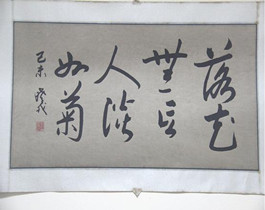 落花
無言
人淡
如菊
己未